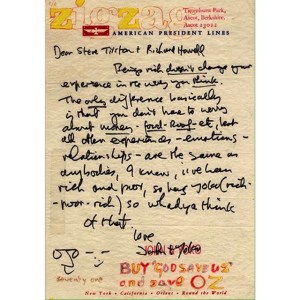 zigzag
Tittenhurst Park,
Ascot, Berkshire.
Ascot 23022
AMERICAN PRESIDENT LINES
Dear Steve Tilston & Richard Howell
Being rich doesn't change your
experience in the way you think.
The only difference basically
is that you don't have to worry
about money - food - Roof - etc, but
all other experiences - emotions -
relationships - are the same as
anybodies, I know, I've been
rich and poor, so has yoko (rich -
poor - rich) so whadya think
of that
love
John & Yoko
seventy one
BUY 'GOD SAVE US'
and save OZ
New York • California • Orient • Round the World